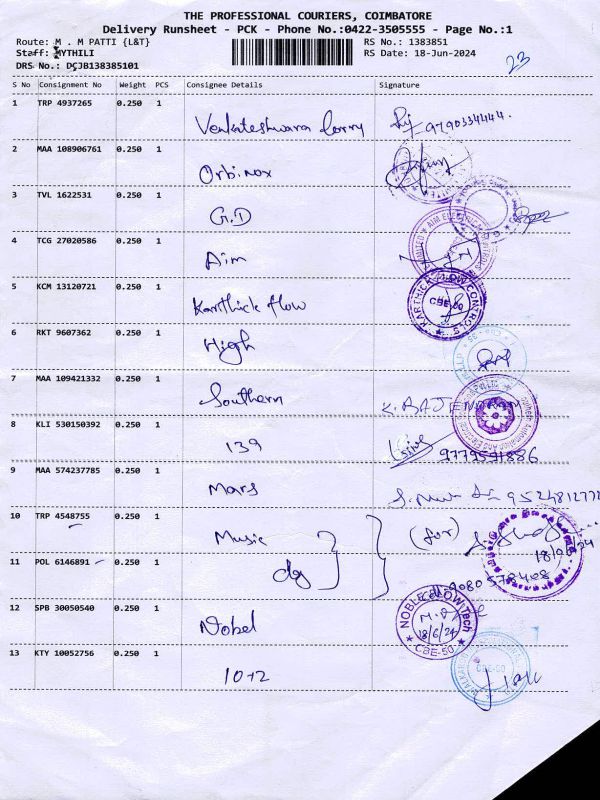 THE PROFESSIONAL COURIERS, COIMBATORE
Delivery Runsheet - PCK - Phone No.:0422-3505555 - Page No.:1
Route: M . M PATTI {L&T} RS No.: 1383851
Staff: MYTHILI RS Date: 18-Jun-2024
DRS No.: DCJB138385101 23
S No Consignment No Weight PCS Consignee Details Signature
1 TRP 4937265 0.250 1
Venkateshwara lorry 9790334444.
2 MAA 108906761 0.250 1
Orbinox
3 TVL 1622531 0.250 1
G.D
4 TCG 27020586 0.250 1
Aim
5 KCM 13120721 0.250 1
Karthick flow KARTHICK FLOW CONTROLS CBE-50
6 RKT 9607362 0.250 1
High
7 MAA 109421332 0.250 1
Southern K. RAJENDRAN
8 KLI 530150392 0.250 1
139 9779591886
9 MAA 574237785 0.250 1
Mars
10 TRP 4548755 0.250 1
Music (for)
18/06/24
11 POL 6146891 0.250 1
dg 9080578408
12 SPB 30050540 0.250 1
Nobel NOBLE FLOW Tech 18/6/24 CBE-50
13 KTY 10052756 0.250 1
10+2 CBE-50